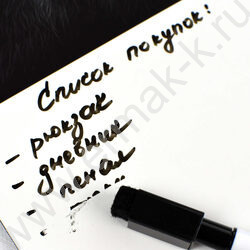 Список покупок!
- рюкзак
- дневник
- пенал